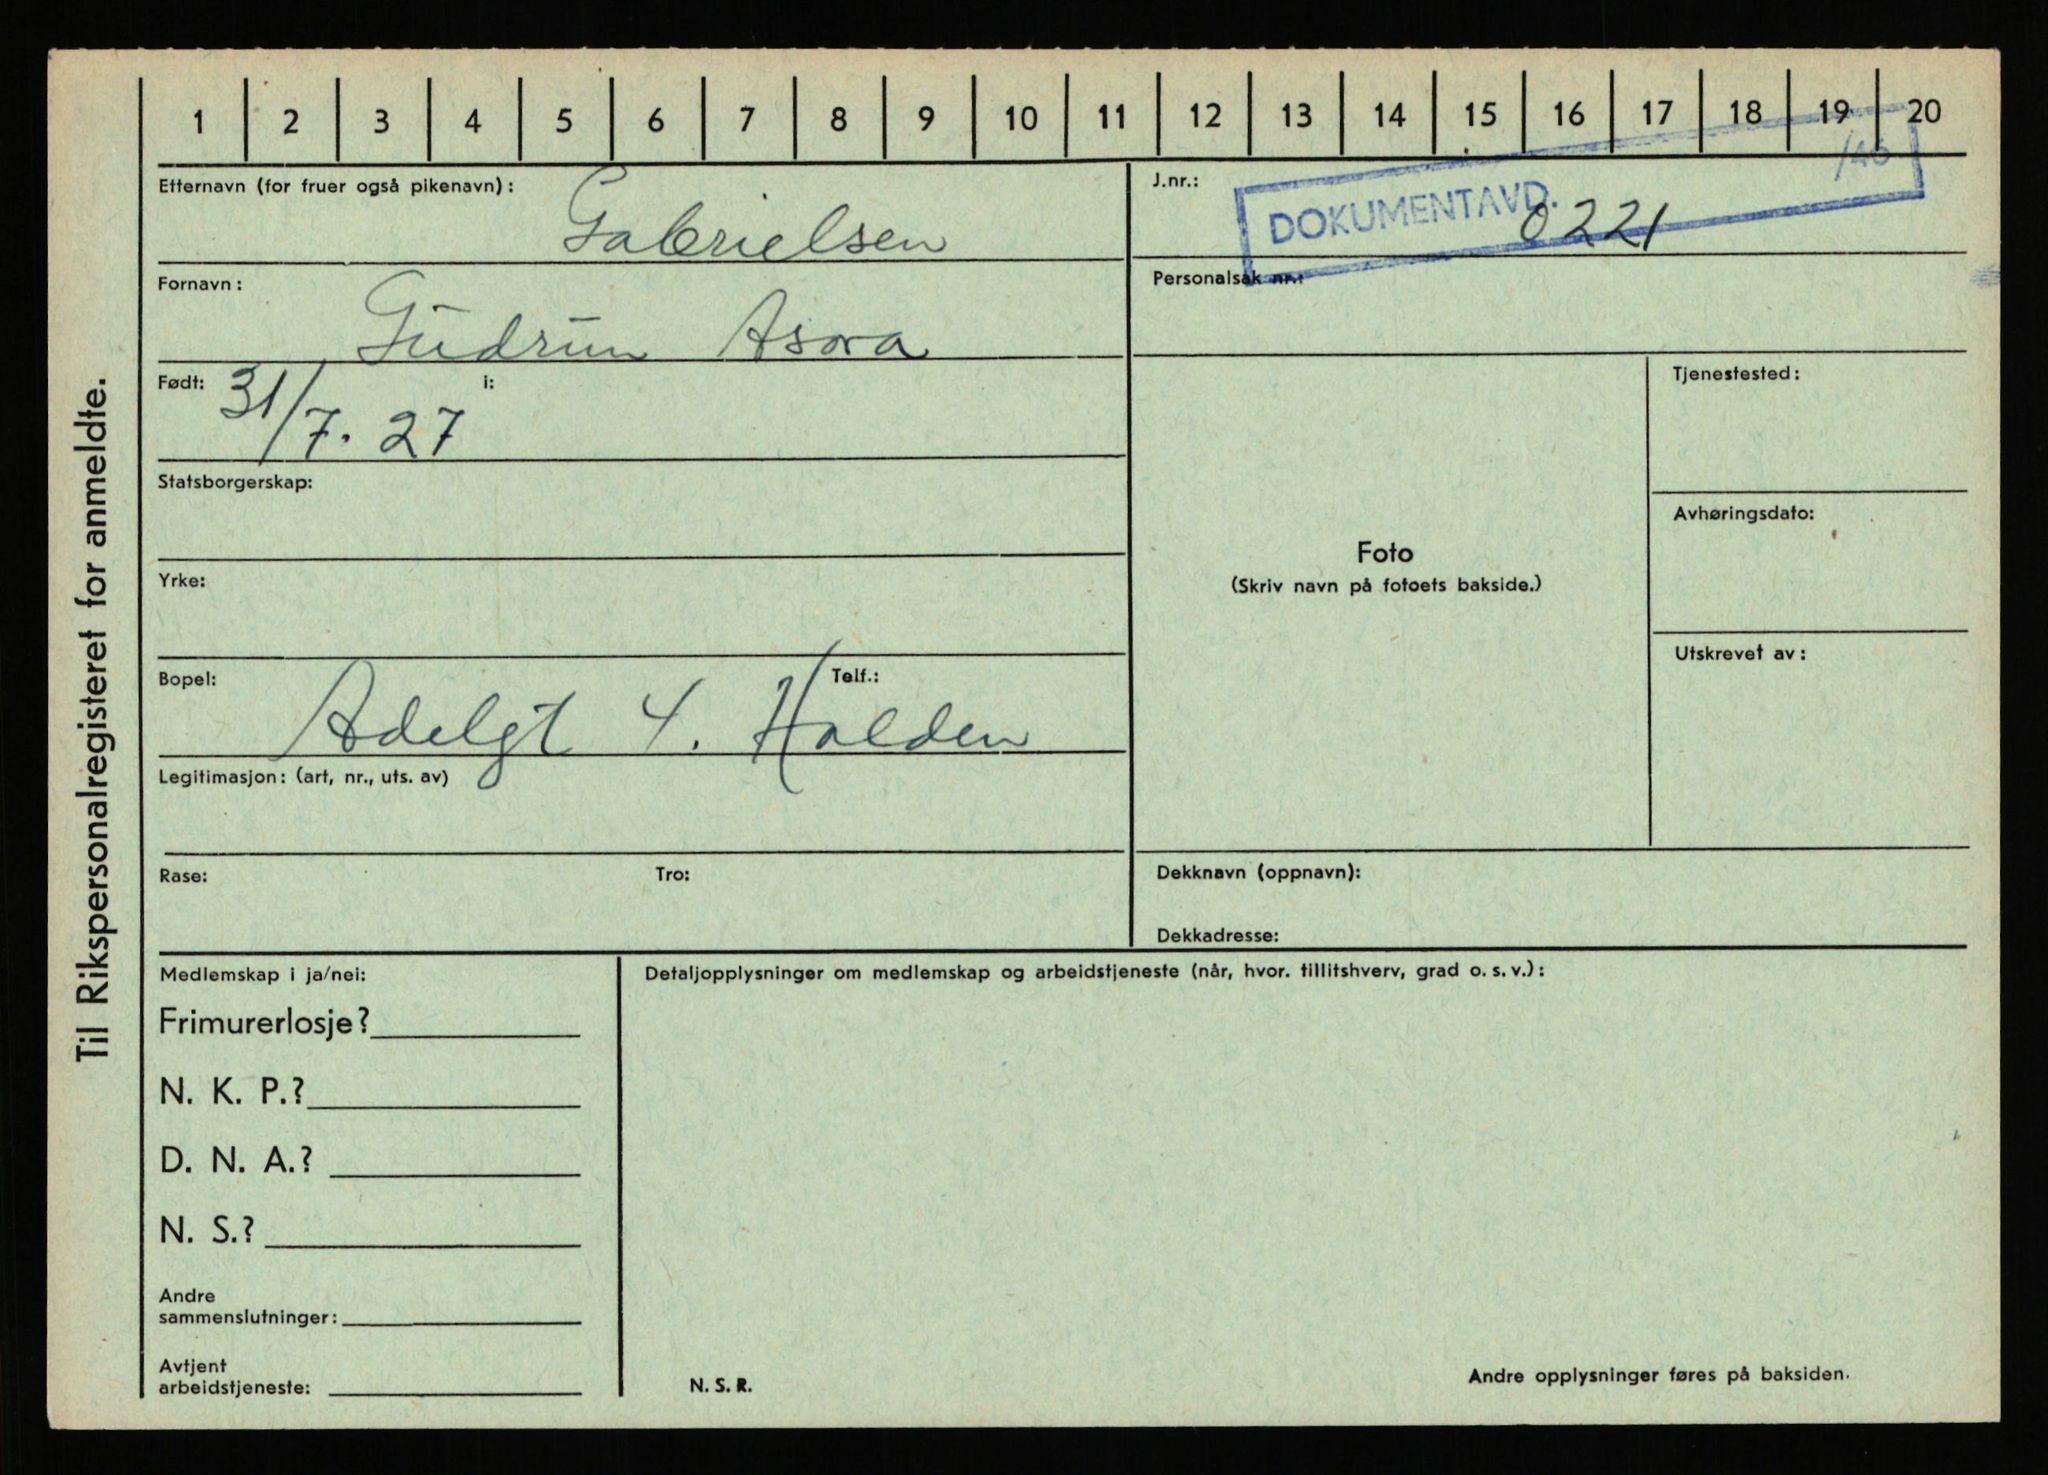 Til Rikspersonalregisteret for anmeldte.
1 2 3 4 5 6 7 8 9 10 11 12 13 14 15 16 17 18 19 20
Etternavn (for fruer også pikenavn):
Gabrielsen
J.nr.:
DOKUMENTAVD.
0221
Fornavn:
Gudrun Asora
Personalsak nr.:
Født: 31/7. 27 i:
Tjenestested:
Statsborgerskap:
Avhøringsdato:
Foto
(Skriv navn på fotoets bakside.)
Yrke:
Utskrevet av:
Bopel: Telf.:
Adelgt 4. Halden
Legitimasjon: (art, nr., uts. av)
Rase: Tro:
Dekknavn (oppnavn):
Dekkadresse:
Medlemskap i ja/nei:
Frimurerlosje?
N. K. P.?
D. N. A.?
N. S.?
Andre
sammenslutninger:
Avtjent
arbeidstjeneste:
Detaljopplysninger om medlemskap og arbeidstjeneste (når, hvor. tillitshverv, grad o. s. v.):
N. S. R.
Andre opplysninger føres på baksiden.